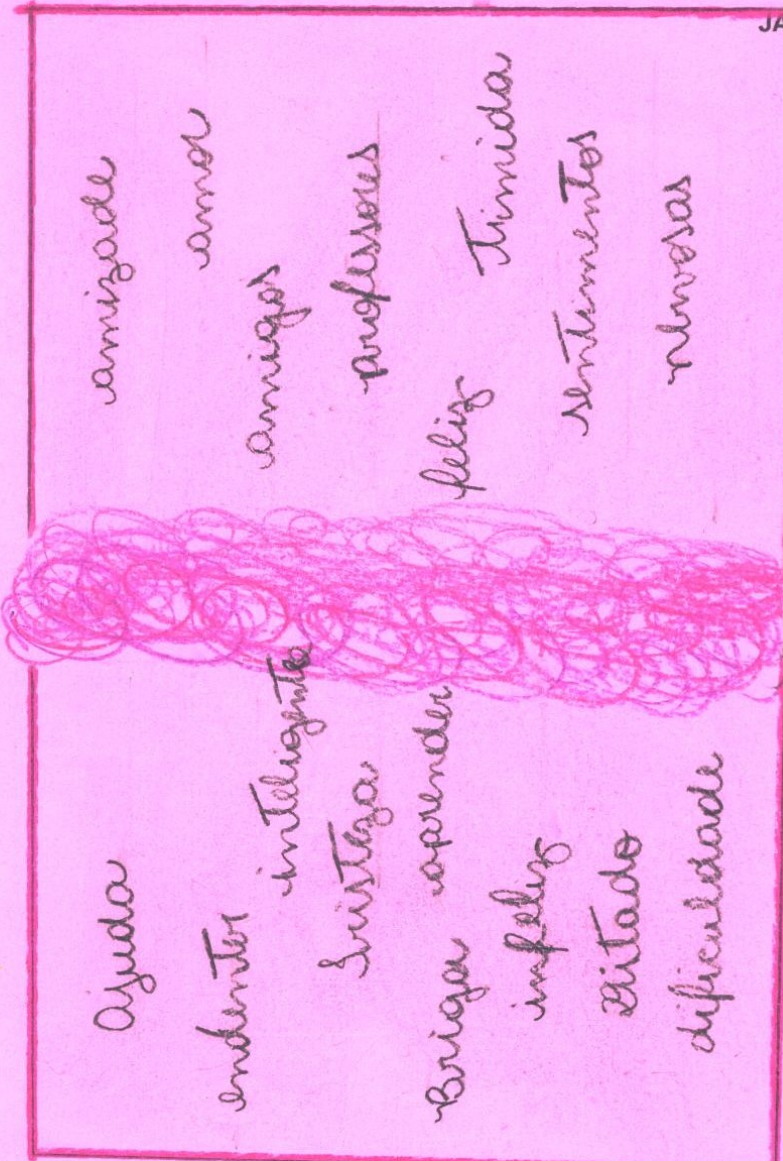 Ajuda
inteligente
tristeza
Briga aprender
infeliz
dificuldade
amizade
amor
amigos
professores
feliz timida
sentimentos